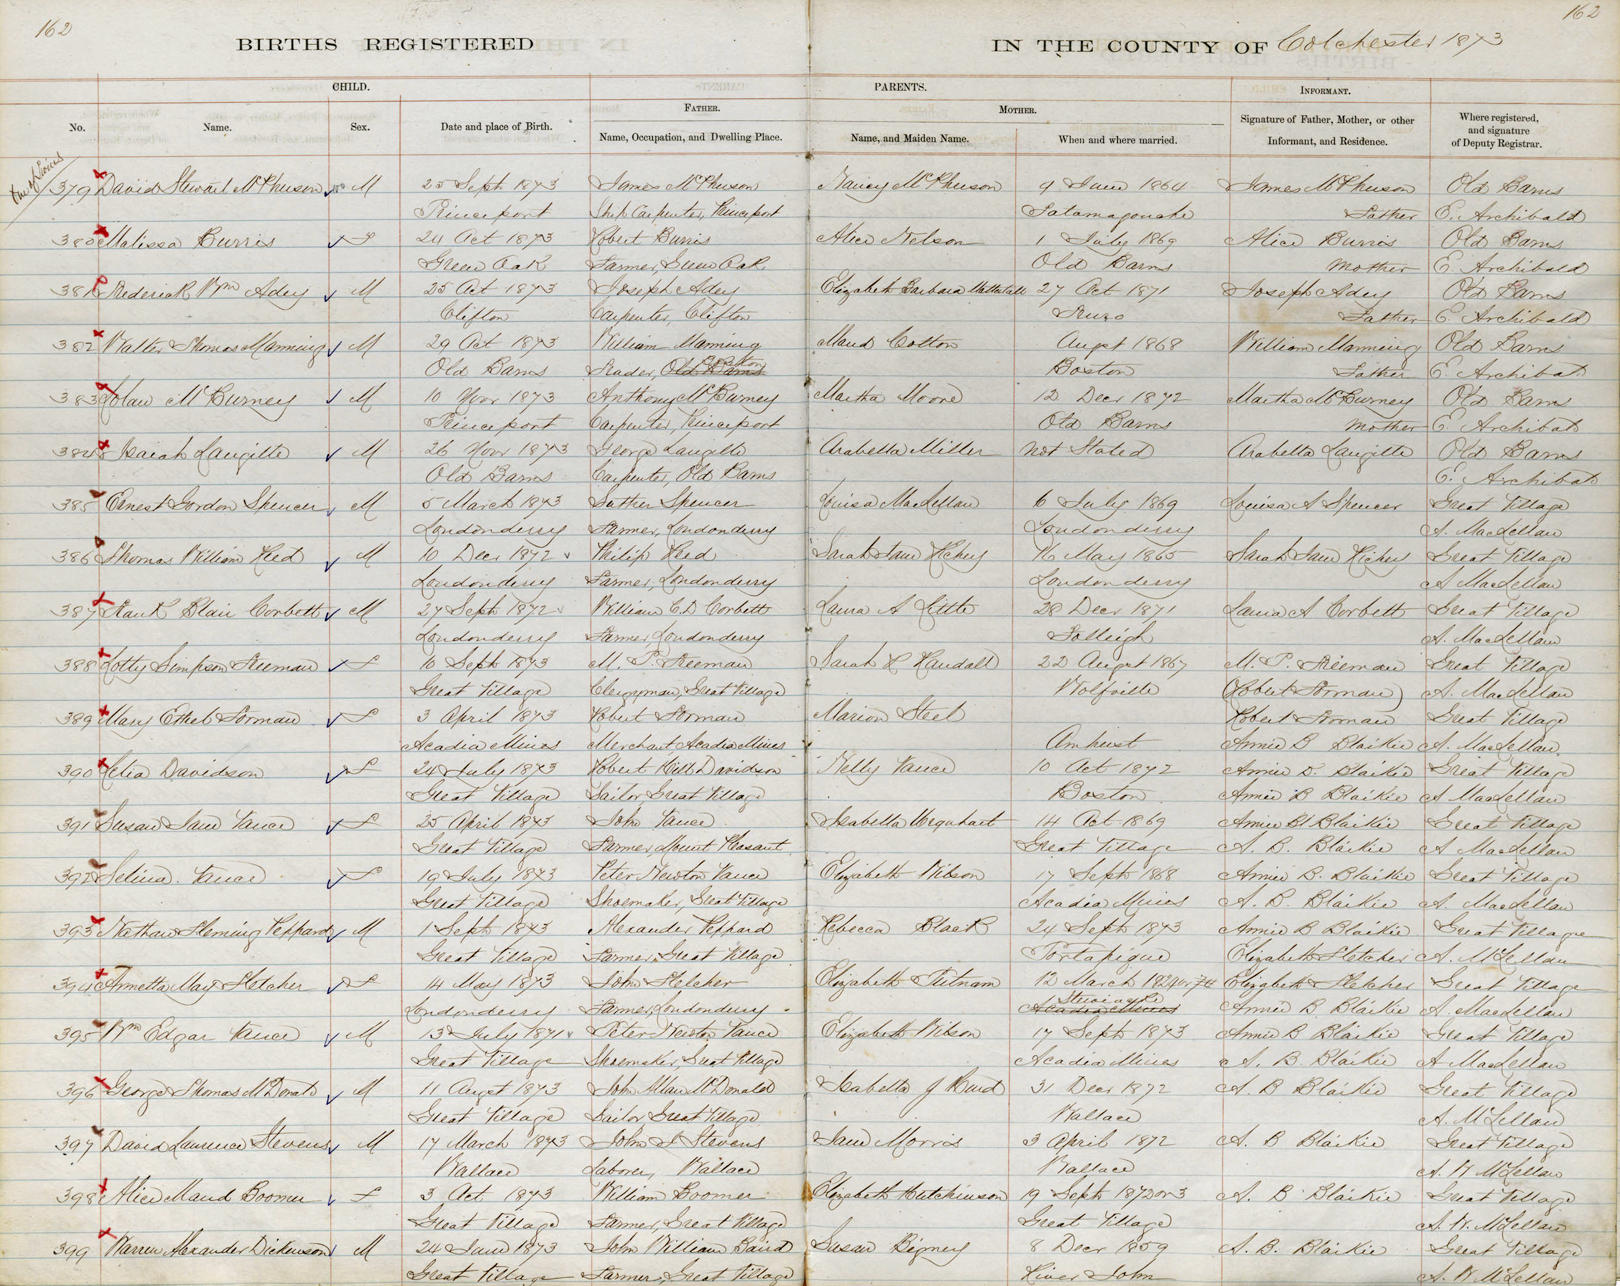 162
162
BIRTHS REGISTERED IN THE COUNTY OF Colchester 1873
CHILD. PARENTS. INFORMANT.
FATHER. MOTHER.
No. Name. Sex. Date and place of Birth. Name, Occupation, and Dwelling Place. Name, and Maiden Name. When and where married. Signature of Father, Mother, or other Informant, and Residence. Where registered, and signature of Deputy Registrar.
379 David Stewart McPherson M 25 Sept 1873 James McPherson Nancy McPherson 9 June 1864 James McPherson Old Barns
Princeport Ship Carpenter, Princeport Tatamagouche Father E. Archibald
380 Malissa Burris F 24 Oct 1873 Robert Burris Alice Nelson 1 July 1869 Alice Burris Old Barns
Green Oak Farmer, Green Oak Old Barns Mother E Archibald
381 Frederick Wm Adey M 25 Oct 1873 Joseph Adey Elizabeth Barbara 27 Oct 1871 Joseph Adey Old Barns
Clifton Carpenter, Clifton Truro Father E. Archibald
382 Walter Thomas Manning M 29 Oct 1873 William Manning Maud Cotton Augst 1868 William Manning Old Barns
Old Barns Trader, Old Barns Boston Boston Father E. Archibat
383 McBurney M 10 Novr 1873 Anthony McBurney Martha Moore 12 Decr 1872 Martha McBurney Old Barns
Princeport Carpenter, Princeport Old Barns Mother E Archibat
384 Isaiah Langille M 26 Novr 1873 George Langille Arabella Miller not Stated Arabella Langille Old Barns
Old Barns Carpenter, Old Barns E. Archibat
385 Ernest Gordon Spencer M 5 March 1873 Luther Spencer Louisa MacLellan 6 July 1869 Louisa A Spencer Great Village
Londonderry Farmer, Londonderry Londonderry A. MacLellan
386 Thomas William Heed M 10 Decr 1872 Philip Heed Sarah Jane Hickey 16 May 1865 Sarah Jane Hickey Great Village
Londonderry Farmer, Londonderry Londonderry A MacLellan
387 Frank Blair Corbett M 27 Sept 1872 William E.D. Corbett Laura A Little 28 Decr 1871 Laura A Corbett Great Village
Londonderry Farmer, Londonderry Folleigh A. MacLellan
388 Lotty Simpson Freeman F 10 Sept 1873 M. P. Freeman Sarah H Randall 22 August 1867 M. P. Freeman Great Village
Great Village Clergyman, Great Village Wolfville (Robert Forman) A. MacLellan
389 Mary Ethel Forman F 3 April 1873 Robert Forman Marion Steel Robert Forman Great Village
Acadia Mines Merchant Acadia Mines Amherst Annie B Blaikie A. MacLellan
390 Letia Davidson F 24 July 1873 Robert Hill Davidson Nelly Vance 10 Oct 1872 Annie B. Blaikie Great Village
Great Village Sailor, Great Village Boston Annie B Blaikie A MacLellan
391 Susan Jane Vance F 25 April 1873 John Vance Isabella Urquhart 14 Oct 1869 Annie B Blaikie Great Village
Great Village Farmer, Mount Pleasant Great Village A. B. Blaikie A MacLellan
392 Selina Vance F 19 July 1873 Peter Newton Vance Elizabeth Wilson 17 Sept 1868 Annie B. Blaikie Great Village
Great Village Shoemaker, Great Village Acadia Mines A. B. Blaikie A MacLellan
393 Nathan Fleming Peppard M 1 Sept 1873 Alexander Peppard Rebecca Black 24 Sept 1873 Annie B Blaikie Great Village
Great Village Farmer, Great Village Portapique Elizabeth Fletcher A. McLellan
394 Annetta May Fletcher F 14 May 1873 John Fletcher Elizabeth Putnam 12 March Elizabeth Fletcher Great Village
Londonderry Farmer, Londonderry Acadia Mines Annie B. Blaikie A. MacLellan
395 Wm Edgar Vance M 13 July 1871 Peter Newton Vance Elizabeth Wilson 17 Sept 1873 Annie B Blaikie Great Village
Great Village Shoemaker, Great Village Acadia Mines A. B Blaikie A MacLellan
396 George Thomas McDonald M 11 Augst 1873 John Allan McDonald Isabella J Hurd 31 Decr 1872 A B Blaikie Great Village
Great Village Sailor Great Village Wallace A. McLellan
397 David Laurence Stevens M 17 March 1873 John S Stevens Jane Morris 3 April 1872 A. B Blaikie Great Village
Wallace Laborer, Wallace Wallace A. W McLellan
398 Alice Maud Boomer F 3 Oct 1873 William Boomer Elizabeth Hutchinson 19 Sept 1872 or 3 A. B Blaikie Great Village
Great Village Farmer, Great Village Great Village A. W. McLellan
399 Warren Alexander Dickenson M 24 June 1873 John William Baird Susan Bigney 8 Decr 1859 A. B. Blaikie Great Village
Great Village Farmer, Great Village River John A. W McLellan